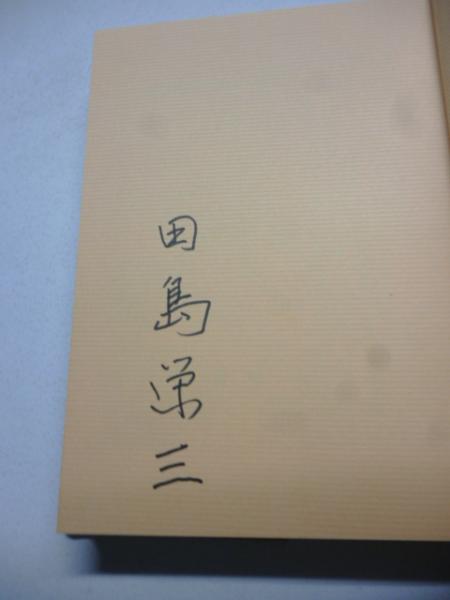 田島栄三